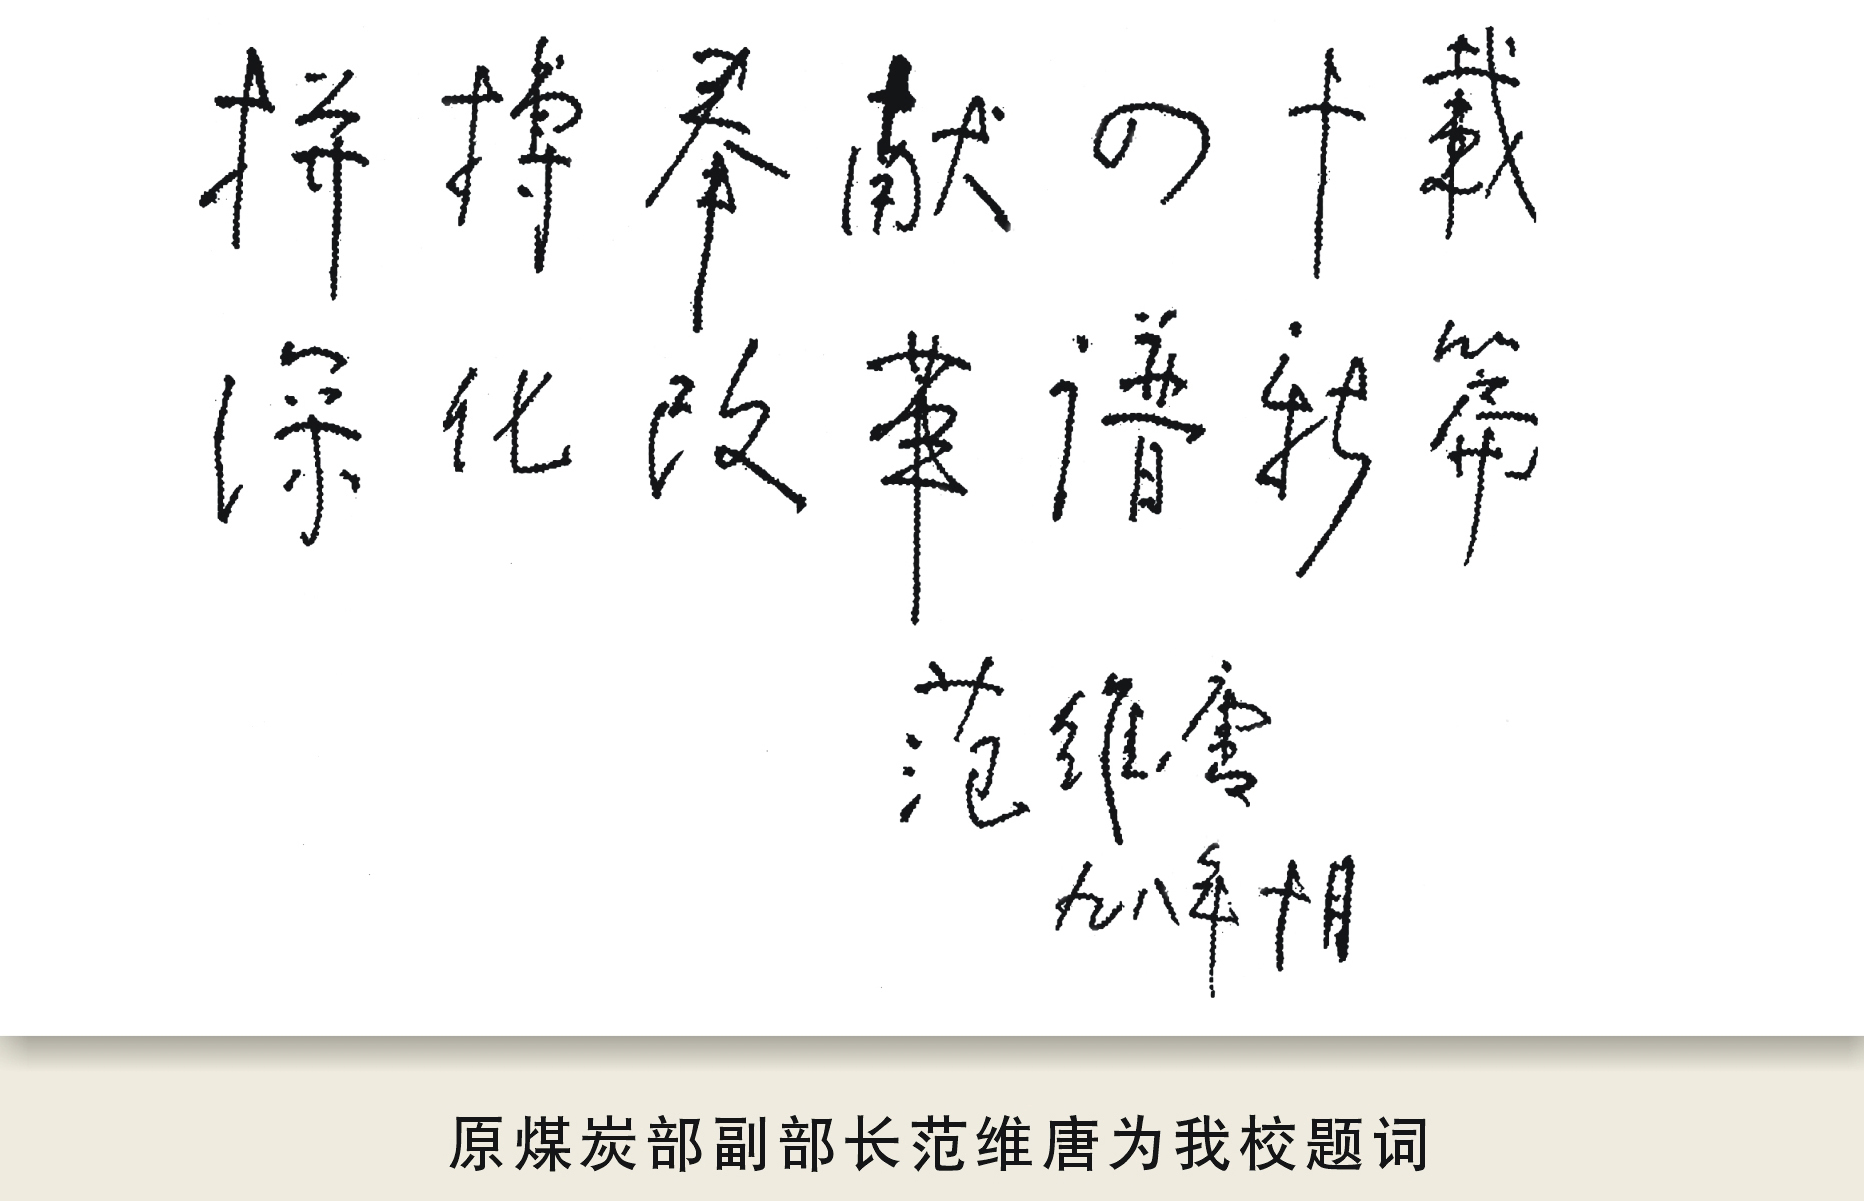 拼搏奉献四十载
深化改革谱新篇
范维唐
九八年十月
原煤炭部副部长范维唐为我校题词